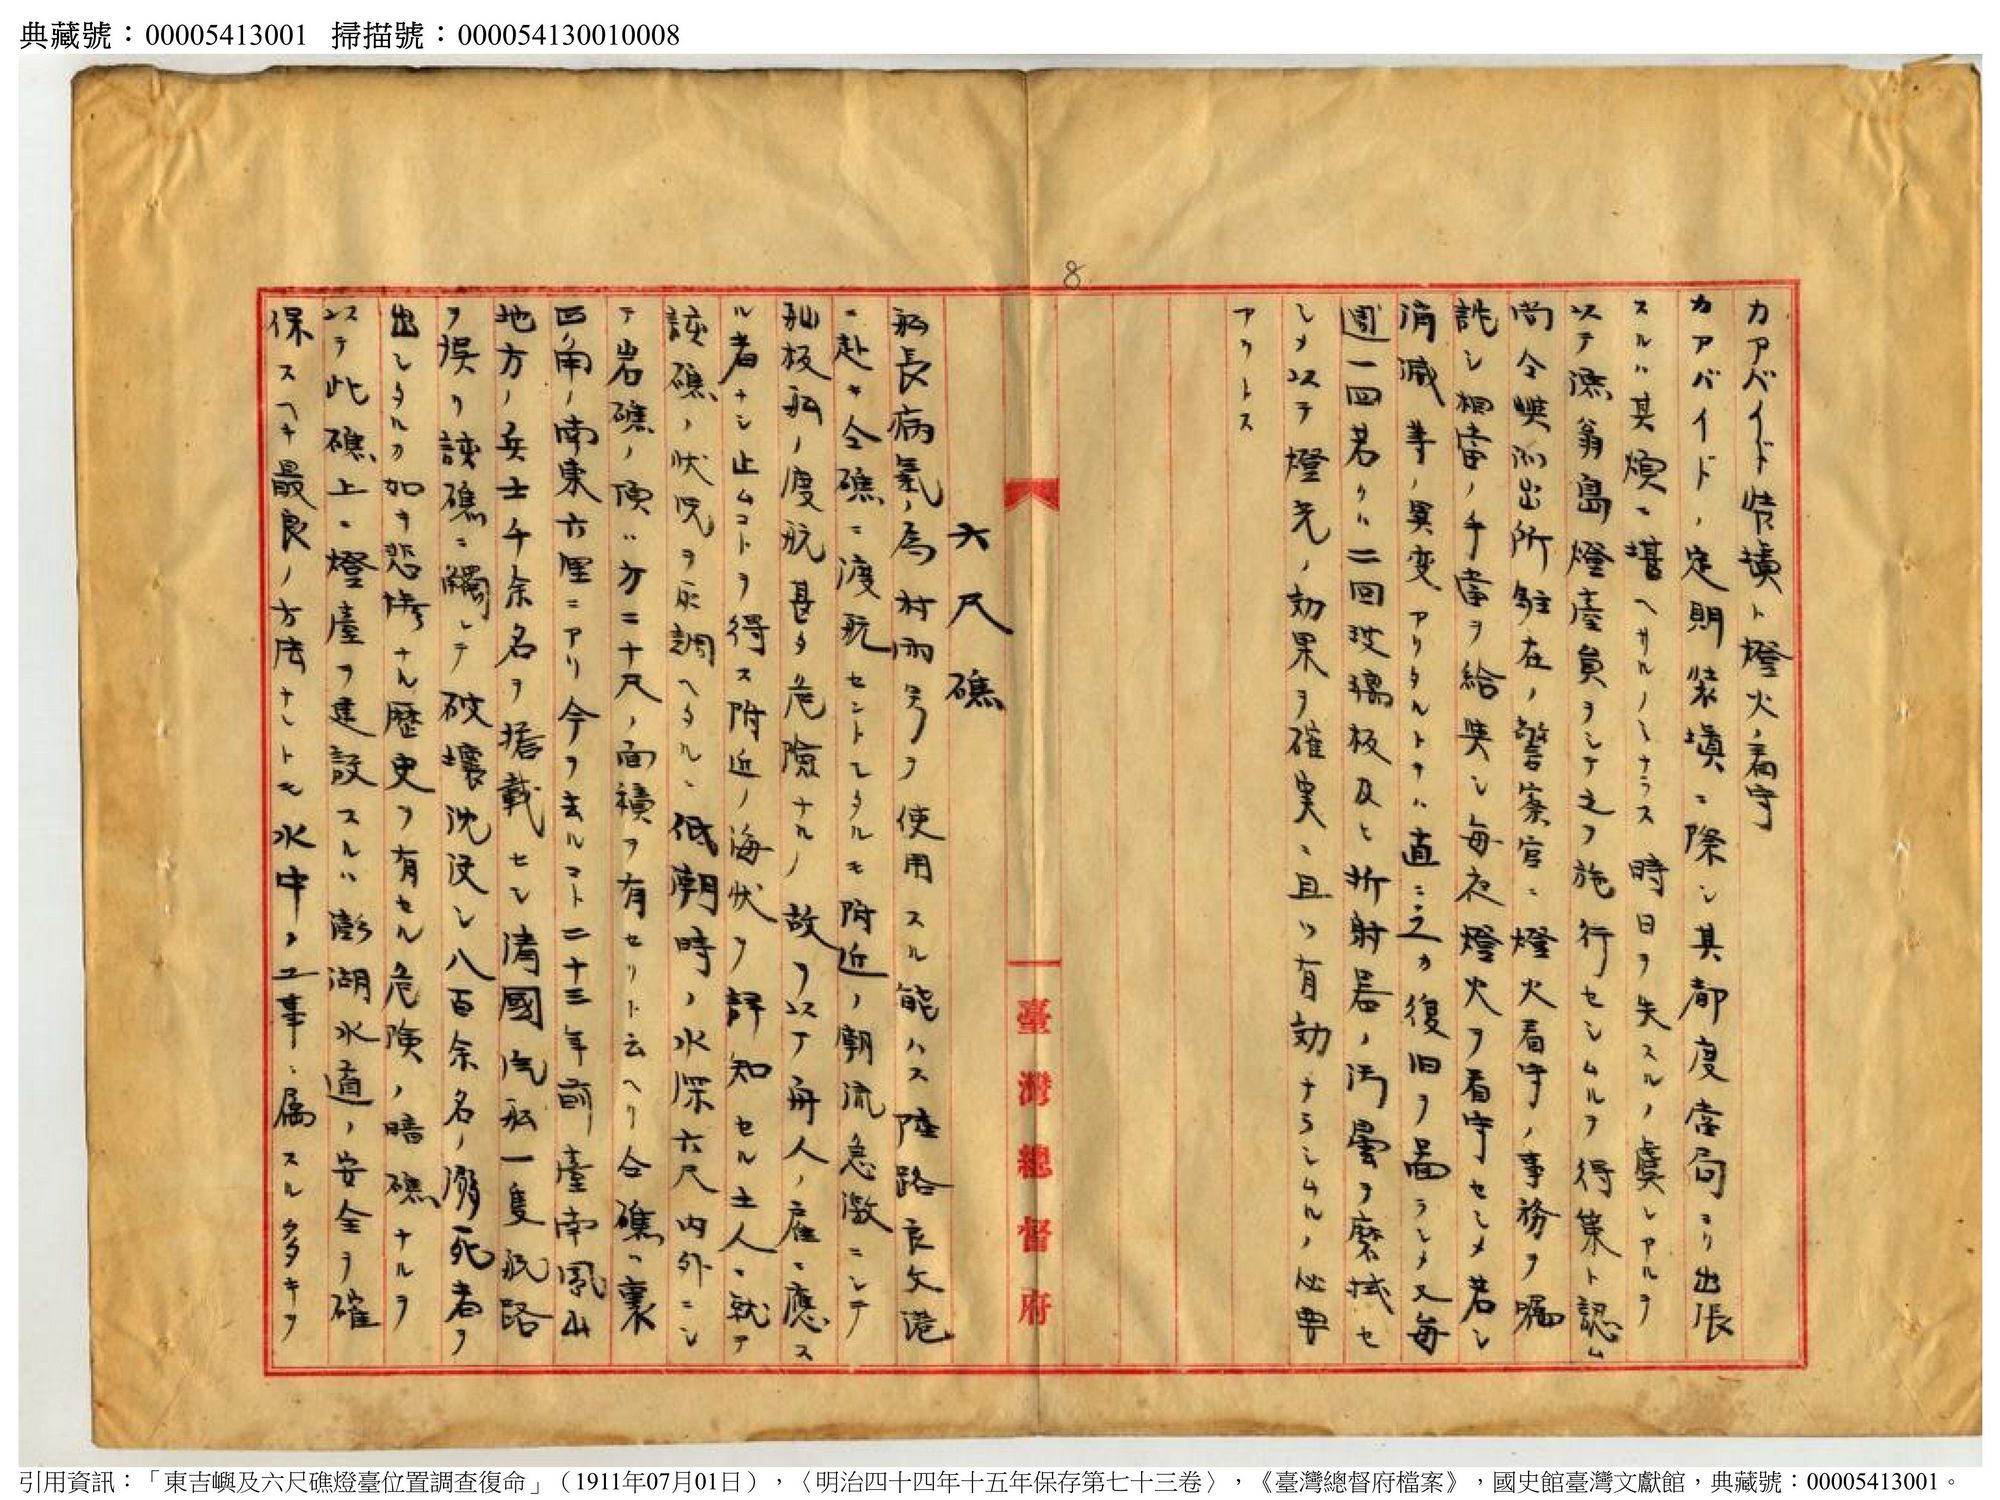 典藏號：00005413001 掃描號：000054130010008
8
カアバイド裝填ト燈火ノ看守
カアバイドノ定期裝填ニ際シ其都度當局ヨリ出張
スルハ其煩ニ堪ヘサルノミナラス時日ヲ失スルノ虞レアルヲ
以テ漁翁島燈臺員ヲシテ之ヲ施行セシムルヲ得策ト認ム
尚令嶼派出所駐在ノ警察官ニ燈火看守ノ事務ヲ囑
託シ相當ノ手當ヲ給與シ每夜燈火ヲ看守セシメ若シ
消滅等ノ異変アリタルトキハ直ニ之カ復旧ヲ圖ラシメ又每
週一回若クハ二回玻璃板及ヒ折射器ノ汚曇ヲ磨拭セ
シメ以テ燈光ノ効果ヲ確実ニ且ツ有効ナラシムルノ必要
アリトス
六尺礁
船長病氣ノ為村雨号ヲ使用スル能ハス陸路良文港
ニ赴キ仝礁ニ渡航セントシタルモ附近ノ潮流急激ニシテ
舢板船ノ度航甚タ危險ナルノ故ヲ以テ舟人ノ雇ニ應ス
ル者ナシ止ムコトヲ得ス附近ノ海状ヲ詳知セル土人ニ就テ
該礁ノ状況ヲ取調ヘタルニ低潮時ノ水深六尺内外ニシ
テ岩礁ノ頂ハ方二十尺ノ面積ヲ有セリト云ヘリ仝礁ハ裏
正角ノ南東六浬ニアリ今ヲ去ルコト二十三年前臺南鳳山
地方ノ兵士千余名ヲ搭載セシ清國汽船一隻航路
ヲ誤リ該礁ニ觸レテ破壞沈没シ八百余名ノ溺死者ヲ
出シタルカ如キ悲慘ナル歷史ヲ有セル危険ノ暗礁ナルヲ
以テ此礁上ニ燈臺ヲ建設スルハ澎湖水道ノ安全ヲ確
保スヘキ最良ノ方法ナレトモ水中ノ工事ニ属スル多キヲ
臺灣總督府
引用資訊：「東吉嶼及六尺礁燈臺位置調查復命」（1911年07月01日），〈明治四十四年十五年保存第七十三卷〉，《臺灣總督府檔案》，國史館臺灣文獻館，典藏號：00005413001。